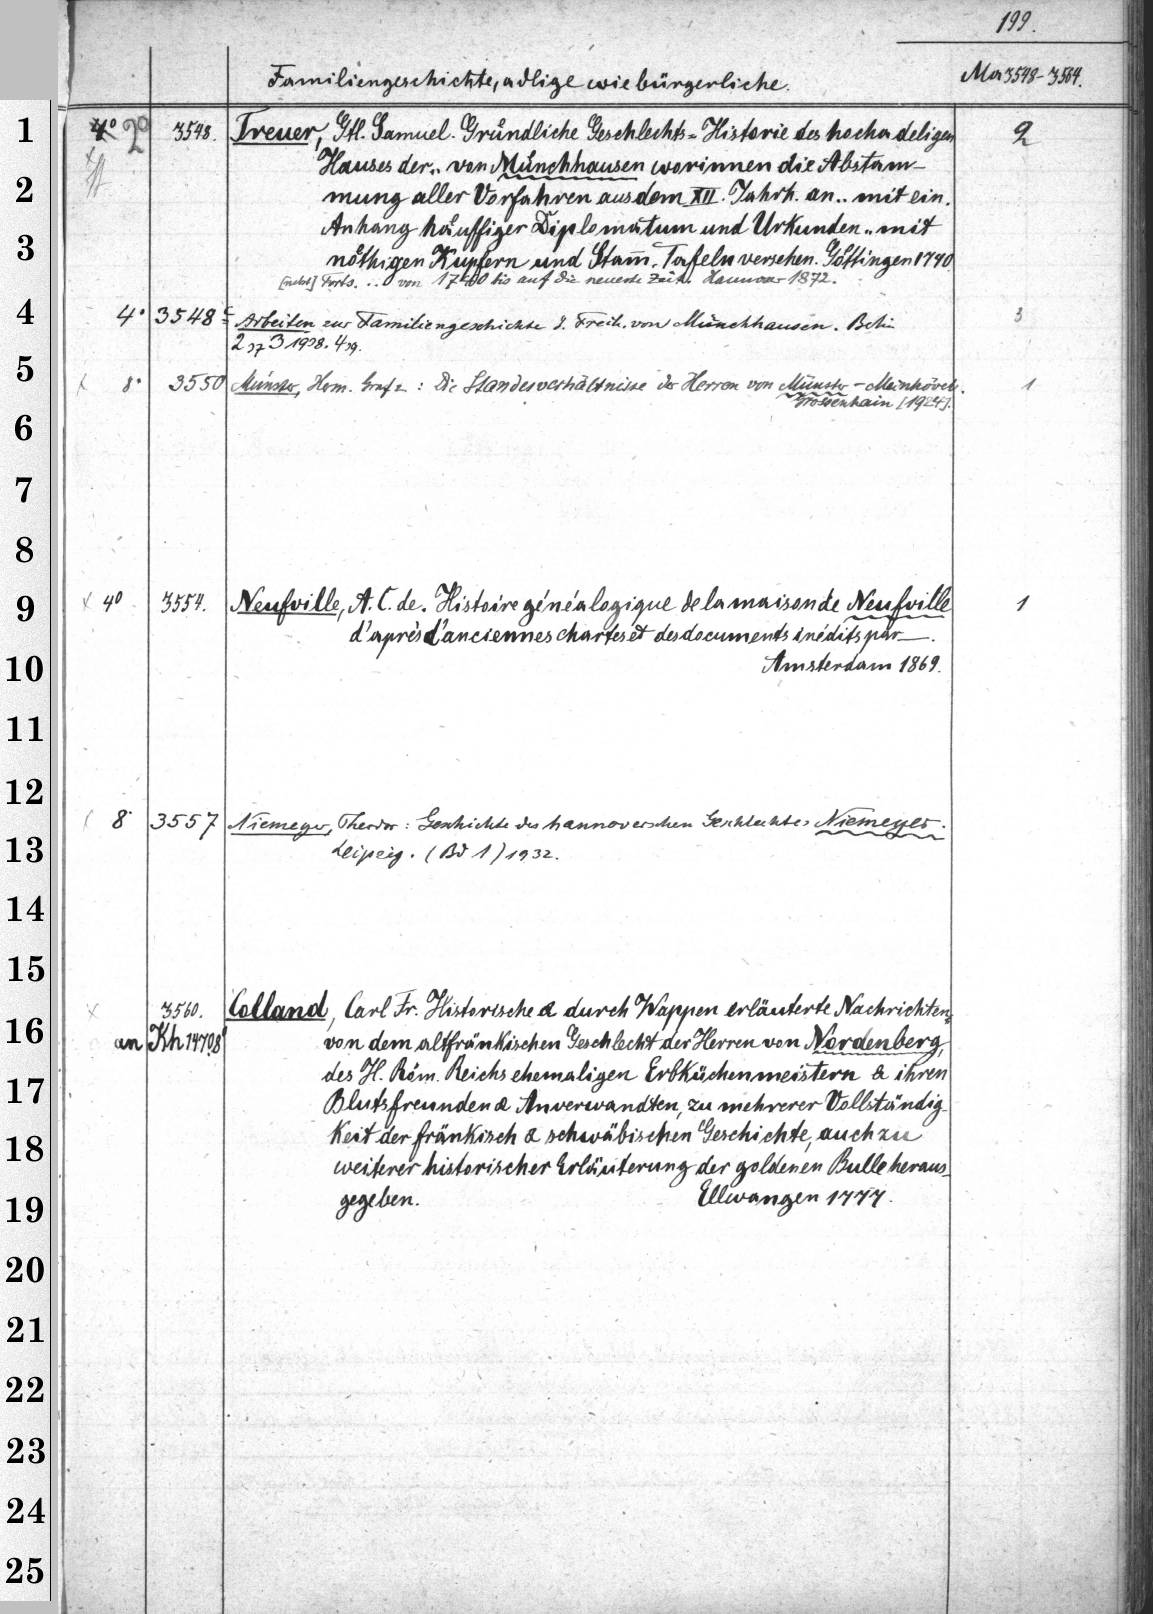 199.
Familiengeschichte, adlige wie bürgerliche. Ma 3548-3564.
1 4° 2° 3548. Treuer, Gtl. Samuel. Gründliche Geschlechts-Historie des hochadeligen 2
Hauses der.. von Münchhausen worinnen die Abstam-
2 mung aller Vorfahren aus dem XII. Jahrh. an.. mit ein.
Anhang häuffiger Diplomatum und Urkunden.. mit
3 nöthigen Kupfern und Stam̄-Tafeln versehen. Göttingen 1740
[nebst] Forts. .. von 1740 bis auf die neueste Zeit. Hannover 1872.
4 4° 3548 c Arbeiten zur Familiengeschichte d. Freih. von Münchhausen. Berlin 3
2 37 3 1938. 4 39.
5 x 8° 3550 Münster, Herm. Graf z: Die Standesverhältnisse der Herren von Münster-Meinhövel. 1
Grossenhain [1924].
6
7
8
9 x 4° 3554. Neufville, A. C. de. Histoire généalogique de la maison de Neufville 1
d'après d'anciennes chartes et des documents inédits par —.
10 Amsterdam 1869.
11
12
8° 3557 Niemeyer, Theodor: Geschichte des hannoverschen Geschlechtes Niemeyer.
13 Leipzig. (Bd 1) 1932.
14
15
x 3560. Colland, Carl Fr. Historische & durch Wappen erläuterte Nachrichten
16 an Kh 14708 von dem altfränkischen Geschlecht der Herren von Nordenberg,
des H. Röm. Reichs ehemaligen Erbküchenmeistern & ihren
17 Blutsfreunden & Anverwandten, zu mehrerer Vollständig-
18 keit der fränkisch & schwäbischen Geschichte, auch zu
weiterer historischer Erläuterung der goldenen Bulle heraus-
19 gegeben. Ellwangen 1777.
20
21
22
23
24
25